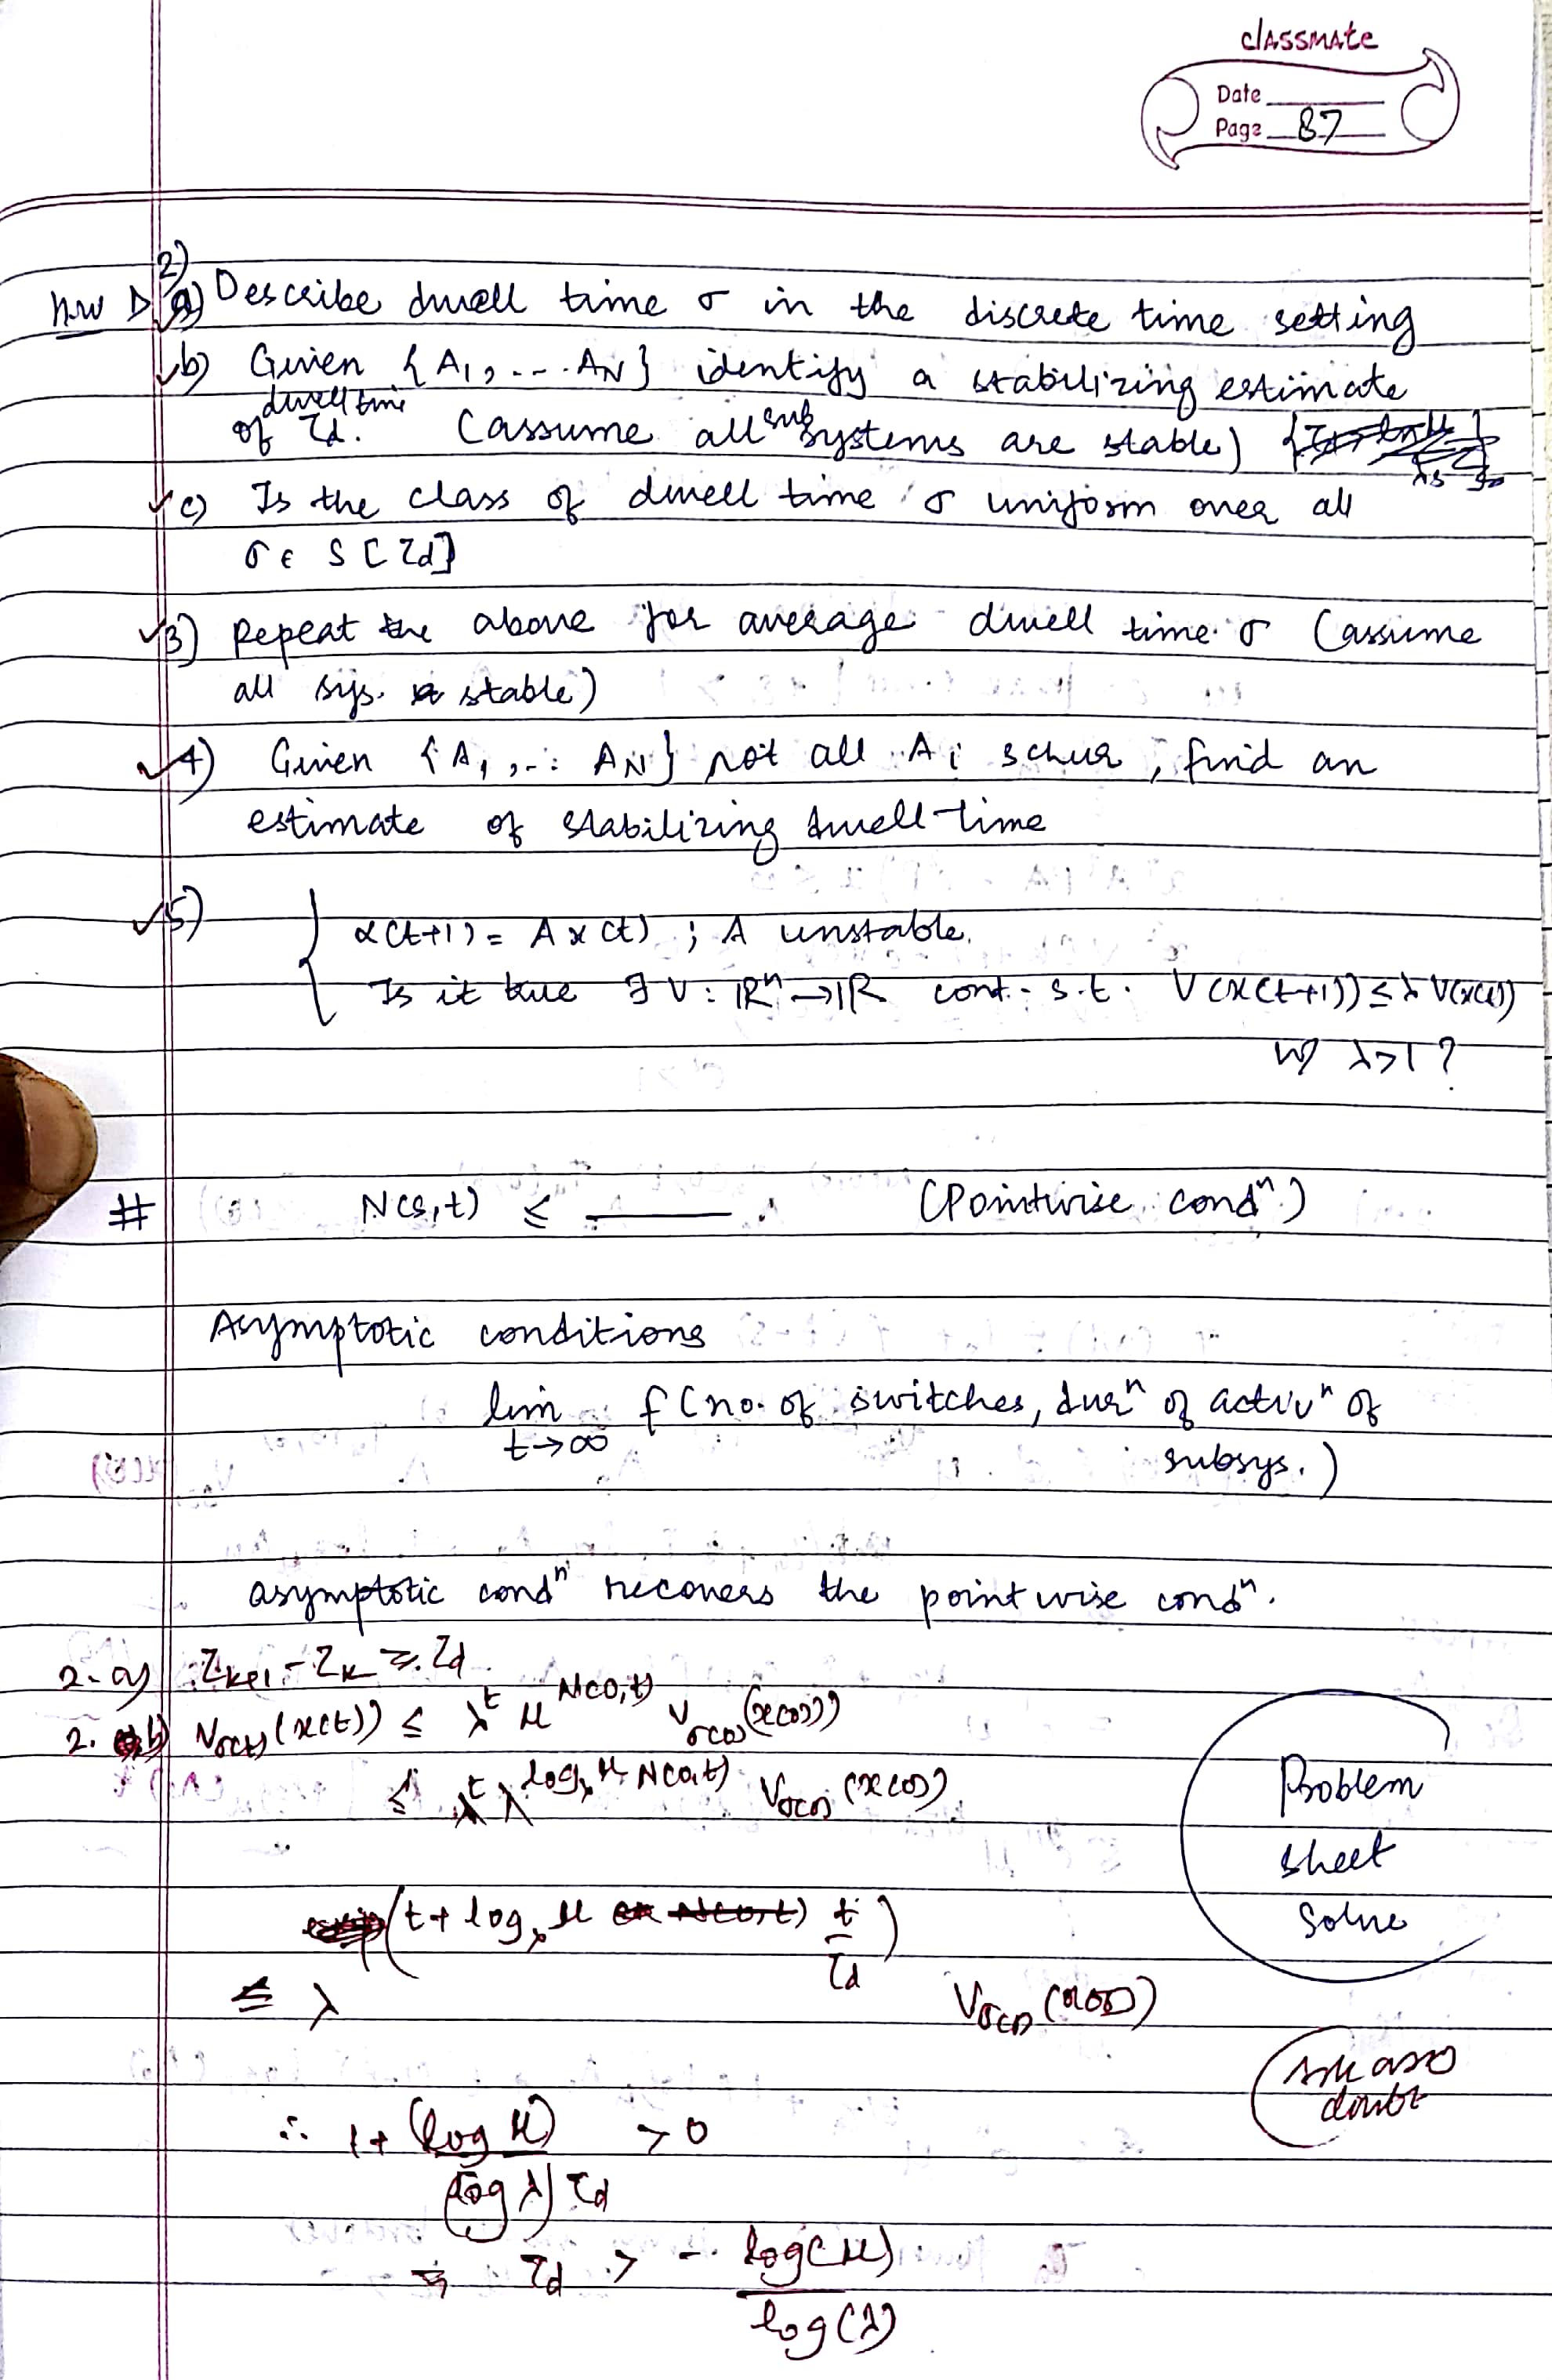 classmate
Date
Page 87
2)
HW a) Describe dwell time σ in the discrete time setting
b) Given {A₁, ... A_N} identify a stabilizing estimate
dwell time
of τd. (assume all subsystems are stable)
c) Is the class of dwell time σ uniform over all
σ ∈ S[τd]
3) Repeat the above for average dwell time σ (assume
all sys. stable)
4) Given {A₁, ... A_N} not all Ai schur, find an
estimate of stabilizing dwell-time
5) x(t+1) = A x(t) ; A unstable.
Is it true ∃ V: ℝⁿ → ℝ cont. s.t. V(x(t+1)) ≤ λ V(x(t))
w/ λ>1 ?
# N(s,t) ≤ ______ . (Pointwise condⁿ)
Asymptotic conditions
lim t→∞ f(no. of switches, durⁿ of activⁿ of
subsys.)
asymptotic condⁿ recovers the pointwise condⁿ.
2. a) τ_{k+1} - τ_k ≥ τd
2. b) V_{σ(t)}(x(t)) ≤ λ^t μ^{N(0,t)} V_{σ(0)}(x(0))
≤ λ^t λ^{log_λ μ N(0,t)} V_{σ(0)}(x(0))
Problem
sheet
Solve
≤ λ^{(t + log_λ μ t/τd)} V_{σ(0)}(x(0))
doubt
∴ 1 + (log μ)/((log λ) τd) > 0
τd > - log(μ)/log(λ)